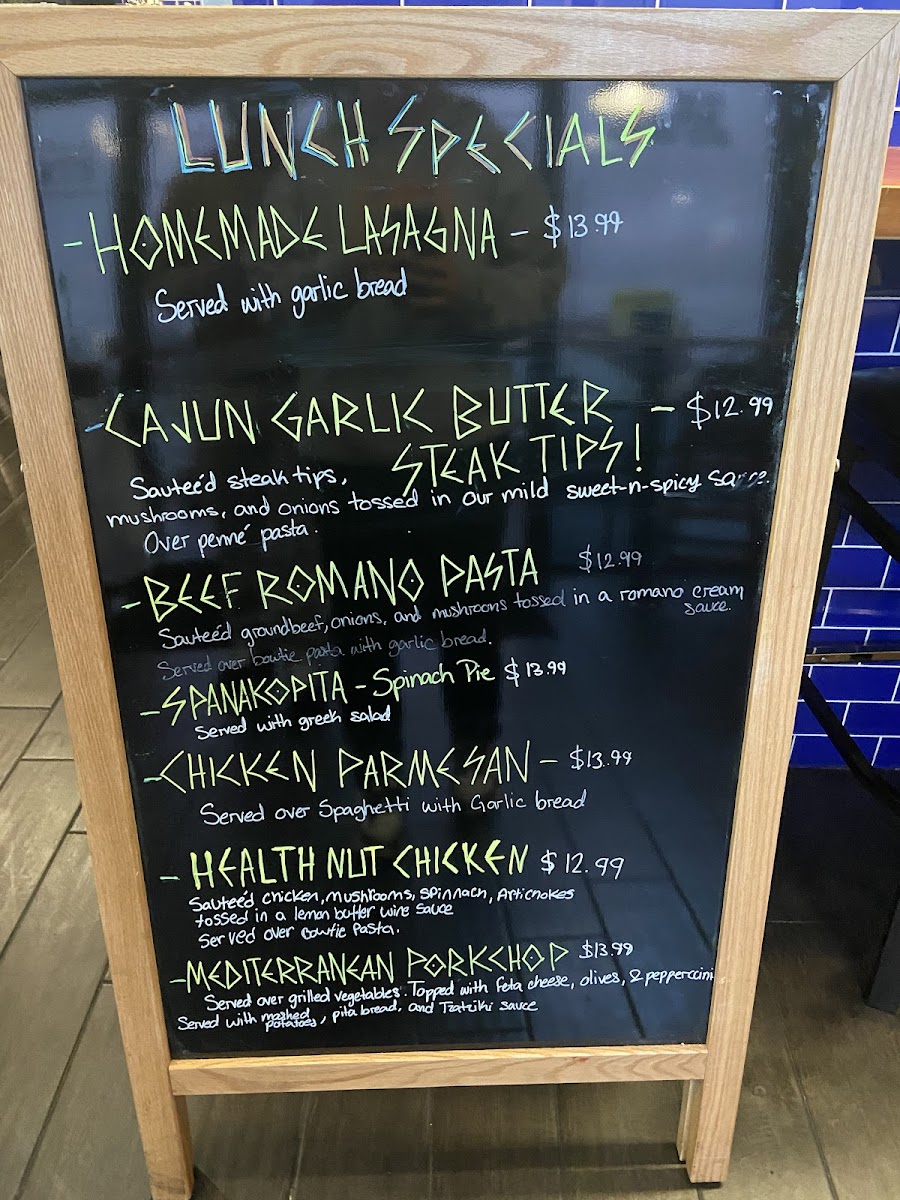 LUNCH SPECIALS
- HOMEMADE LASAGNA - $13.99
Served with garlic bread
- CAJUN GARLIC BUTTER - $12.99
STEAK TIPS!
Sauteé'd steak tips,
mushrooms, and onions tossed in our mild sweet-n-spicy sauce.
Over penné pasta.
- BEEF ROMANO PASTA $12.99
Sauteé'd groundbeef, onions, and mushrooms tossed in a romano cream
sauce.
Served over bowtie pasta with garlic bread.
- SPANAKOPITA - Spinach Pie $13.99
Served with greek salad
- CHICKEN PARMESAN - $13.99
Served over Spaghetti with Garlic bread
- HEALTH NUT CHICKEN $12.99
Sauteé'd chicken, mushrooms, spinnach, Artichokes
tossed in a lemon butter wine sauce
Served over bowtie Pasta.
- MEDITERRANEAN PORKCHOP $13.99
Served over grilled vegetables. Topped with feta cheese, olives, & pepperccini
Served with mashed potatoes, pita bread, and Tzatziki sauce